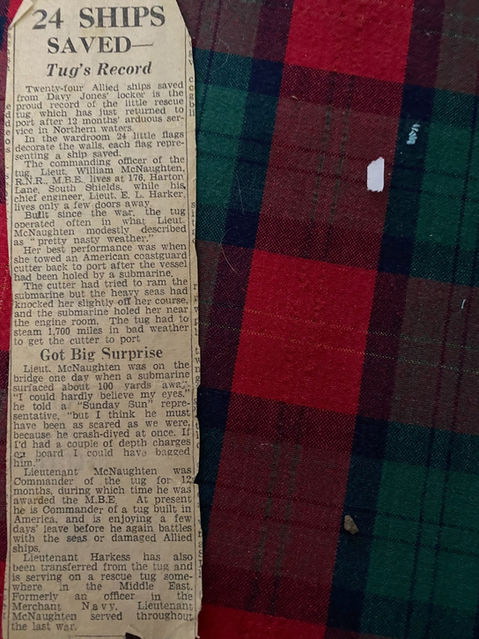 24 SHIPS
SAVED—
Tug's Record
Twenty-four Allied ships saved
from Davy Jones' locker is the
proud record of the little rescue
tug which has just returned to
port after 12 months' arduous ser-
vice in Northern waters.
In the wardroom 24 little flags
decorate the walls, each flag repre-
senting a ship saved.
The commanding officer of the
tug, Lieut. William McNaughten,
R.N.R., M.B.E. lives at 176, Harton
Lane, South Shields, while his
chief engineer, Lieut. E. L. Harker,
lives only a few doors away.
Built since the war, the tug
operated often in what Lieut.
McNaughten modestly described
as "pretty nasty weather."
Her best performance was when
she towed an American coastguard
cutter back to port after the vessel
had been holed by a submarine.
The cutter had tried to ram the
submarine but the heavy seas had
knocked her slightly off her course,
and the submarine holed her near
the engine room. The tug had to
steam 1,700 miles in bad weather
to get the cutter to port
Got Big Surprise
Lieut. McNaughten was on the
bridge one day when a submarine
surfaced about 100 yards away.
"I could hardly believe my eyes,"
he told a "Sunday Sun" repre-
sentative, "but I think he must
have been as scared as we were,
because he crash-dived at once. If
I'd had a couple of depth charges
on board I could have bagged
him."
Lieutenant McNaughten was
Commander of the tug for 12
months, during which time he was
awarded the M.B.E. At present
he is Commander of a tug built in
America, and is enjoying a few
days' leave before he again battles
with the seas or damaged Allied
ships.
Lieutenant Harkess has also
been transferred from the tug and
is serving on a rescue tug some-
where in the Middle East.
Formerly an officer in the
Merchant Navy, Lieutenant
McNaughten served throughout
the last war.